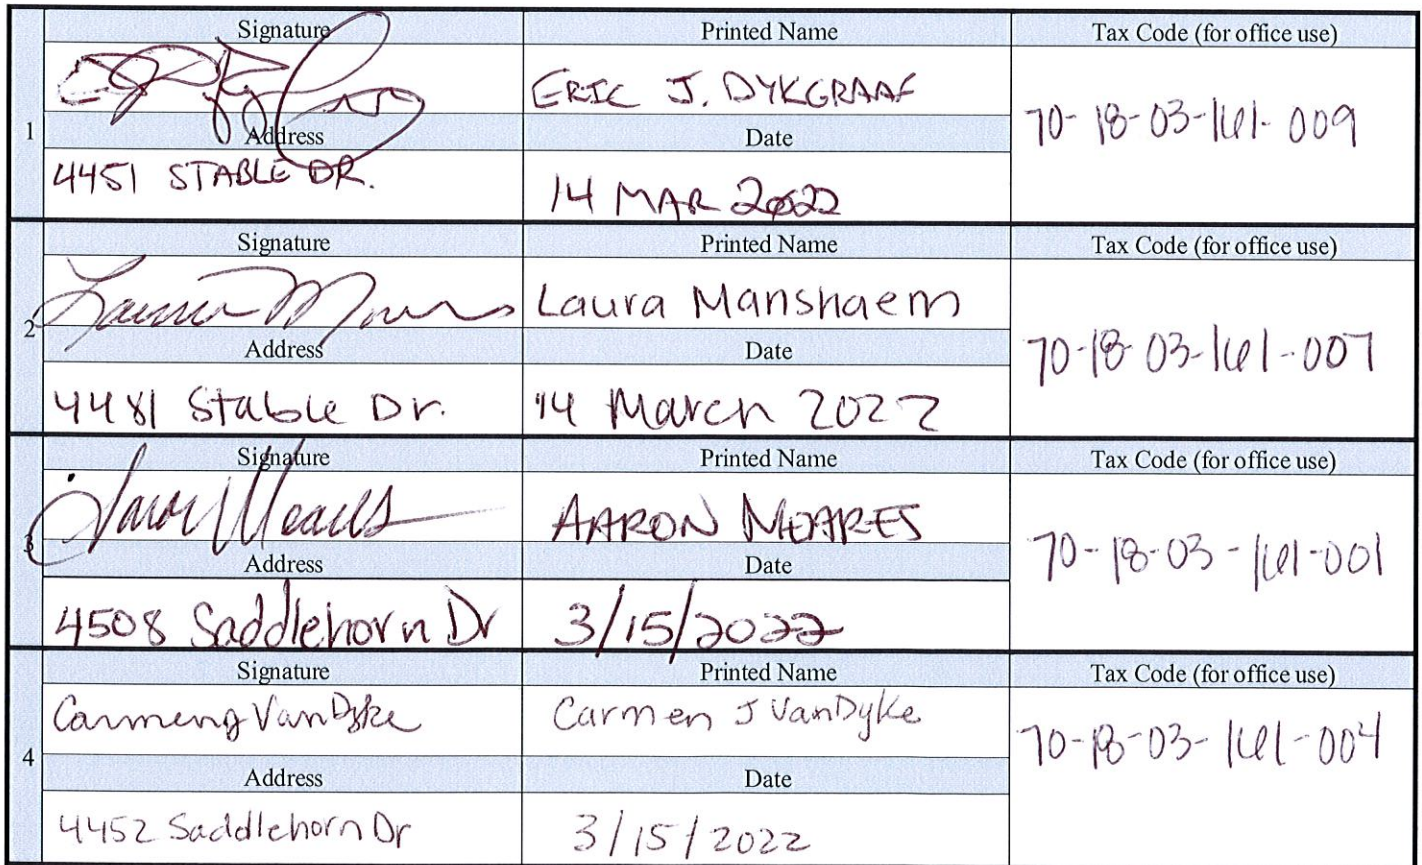 Signature Printed Name Tax Code (for office use)
ERIC J. DYKGRAAF
70-18-03-161-009
1
Address Date
4451 STABLE DR. 14 MAR 2022
Signature Printed Name Tax Code (for office use)
Laura Manshaem
70-18-03-161-007
2
Address Date
4481 Stable Dr. 14 March 2022
Signature Printed Name Tax Code (for office use)
AARON MEARES
70-18-03-161-001
3
Address Date
4508 Saddlehorn Dr 3/15/2022
Signature Printed Name Tax Code (for office use)
Carmen J VanDyke Carmen J VanDyke
70-18-03-161-004
4
Address Date
4452 Saddlehorn Dr 3/15/2022